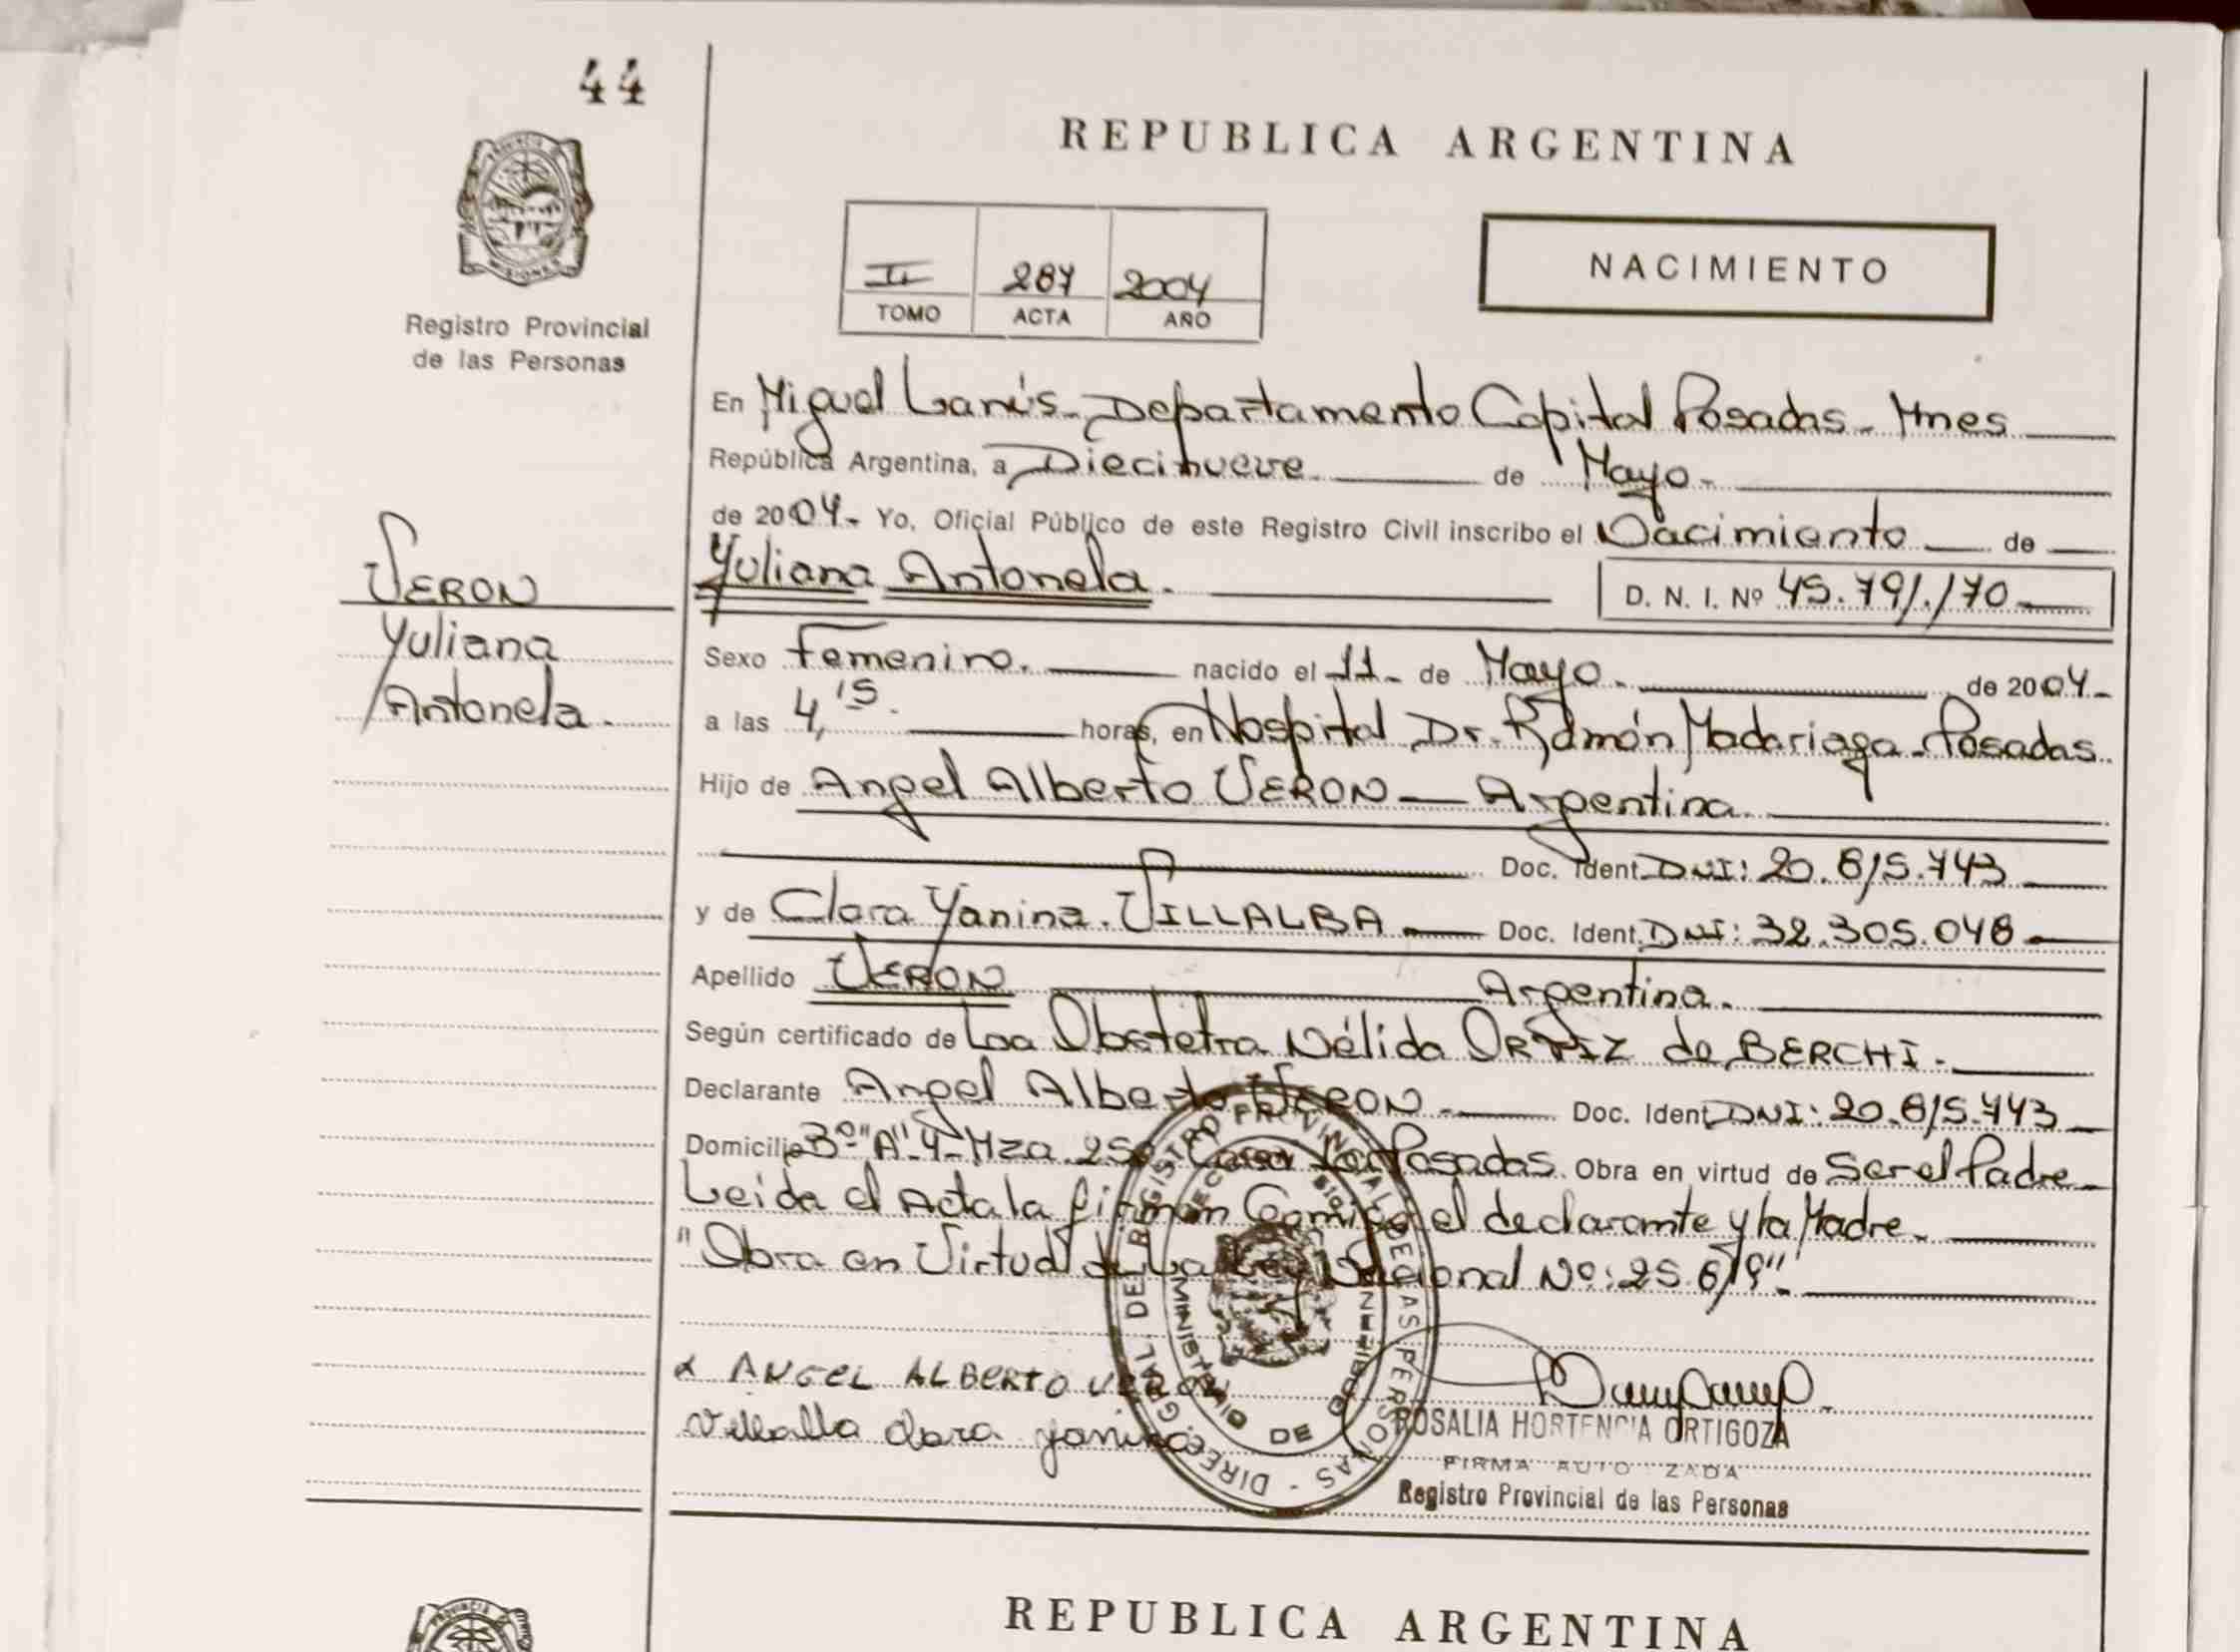 44
REPUBLICA ARGENTINA
PROVINCIA DE
MISIONES
Registro Provincial
de las Personas
II 287 2004
TOMO ACTA AÑO
NACIMIENTO
En Miguel Lanús - Departamento Capital Posadas - Mnes
República Argentina, a Diecinueve de Mayo -
de 2004 - Yo, Oficial Público de este Registro Civil inscribo el Nacimiento de
Yuliana Antonela. D. N. I. Nº 45.791.170
VERON
Yuliana
Antonela.
Sexo Femenino. nacido el 11 - de Mayo. de 2004 -
a las 4,15. horas, en Hospital Dr. Ramón Madariaga - Posadas.
Hijo de Angel Alberto VERON — Argentina.
Doc. Ident. DNI: 20.815.743
y de Clara Yanina. VILLALBA Doc. Ident. DNI: 32.305.048
Apellido VERON Argentina.
Según certificado de Loa Obstetra Nélida ORTIZ de BERCHI.
Declarante Angel Alberto VERON Doc. Ident. DNI: 20.815.743
Domicilio Bº "A" 4 - Mza. 250 Casa Posadas. Obra en virtud de Ser el Padre
Leida el Acta la firman Conmigo el declarante y la Madre.
"Obra en Virtud de La Ley Nacional Nº: 25.819"
ANGEL ALBERTO VERON
Villalba Clara yanina
DIREC. GRAL. DEL REGISTRO PROVINCIAL DE LAS PERSONAS
ROSALIA HORTENCIA ORTIGOZA
FIRMA AUTORIZADA
Registro Provincial de las Personas
PROVINCIA
REPUBLICA ARGENTINA